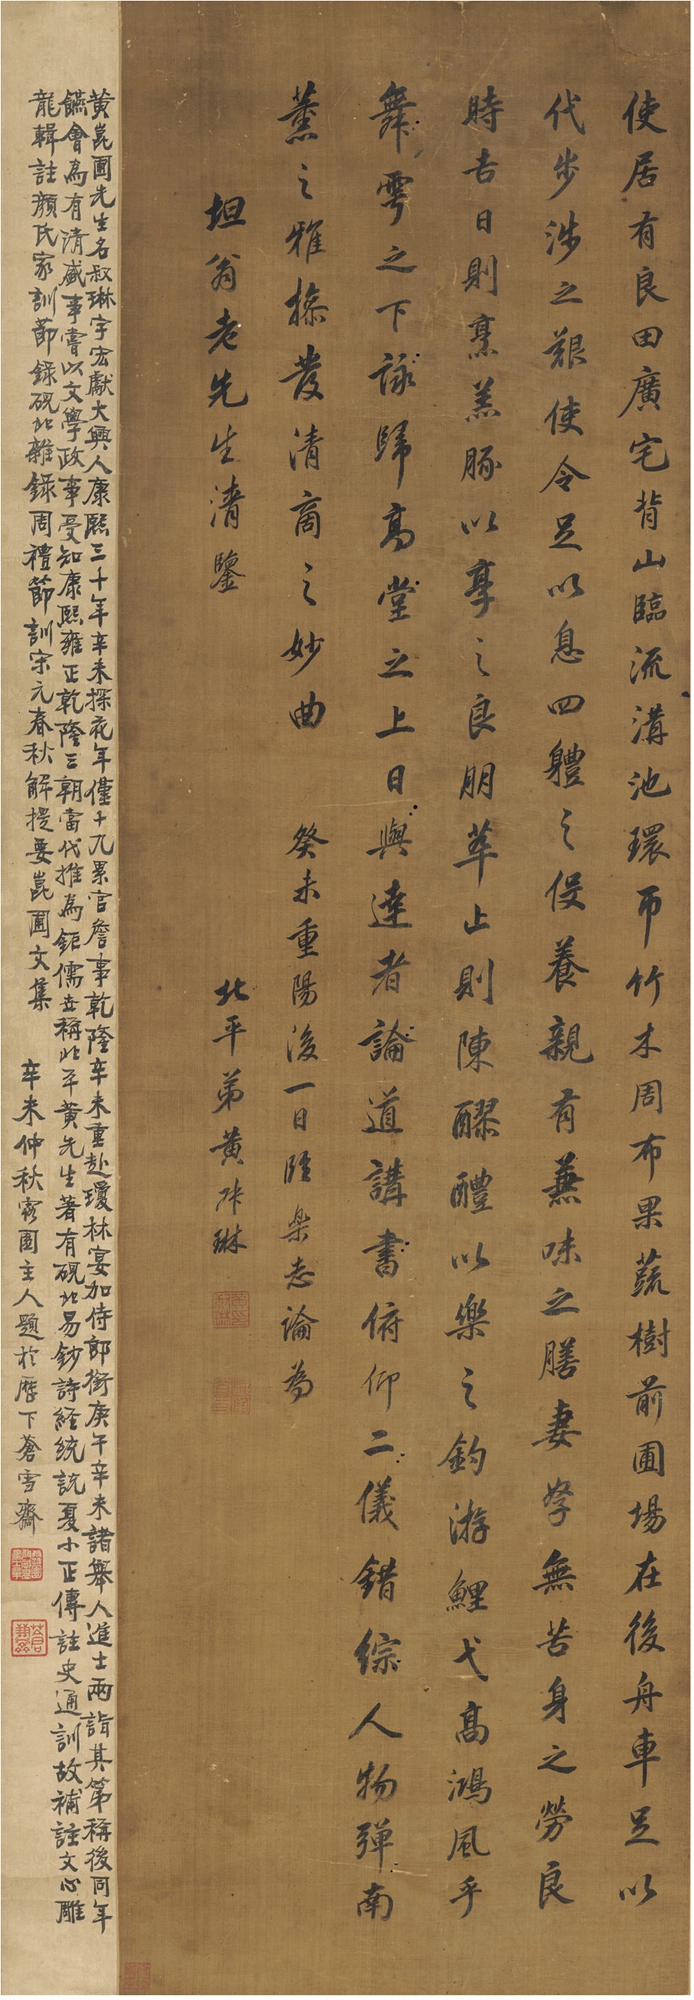 使居有良田廣宅背山臨流溝池環帀竹木周布果蔬樹前圃場在後舟車足以
代步涉之艱使令足以息四體之役養親有兼味之膳妻孥無苦身之勞良
時吉日則烹羔豚以享之良朋萃止則陳醪醴以樂之釣游鯉弋高鴻風乎
舞雩之下詠歸高堂之上日與達者論道講書俯仰二儀錯綜人物彈南
薰之雅操發清商之妙曲 癸未重陽後一日臨樂志論為
坦翁老先生清鑒 北平弟黃叔琳
黃崑圃先生名叔琳字宏獻大興人康熙三十年辛未探花年僅十九累官詹事乾隆辛未重赴瓊林宴加侍郎銜庚午辛未諸舉人進士兩詣其第稱後同年
饊會為有清盛事嘗以文學政事受知康熙雍正乾隆三朝當代推為鉅儒世稱北平黃先生著有硯北易鈔詩經統說夏小正傳註史通訓故補註文心雕
龍輯註顏氏家訓節錄硯北雜錄周禮節訓宋元春秋解提要崑圃文集 辛未仲秋霧園主人題於歷下蒼雪齋